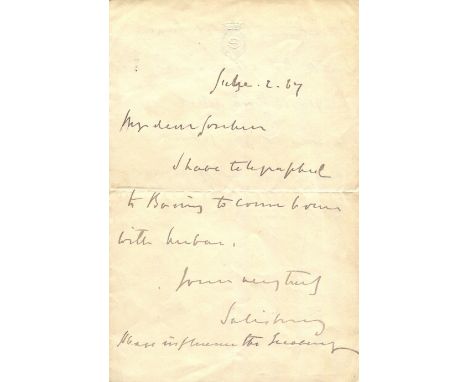 July. 2. 87
My dear Goschen
I have telegraphed
to Baring to come home
with
Yours very truly
Salisbury
influence the